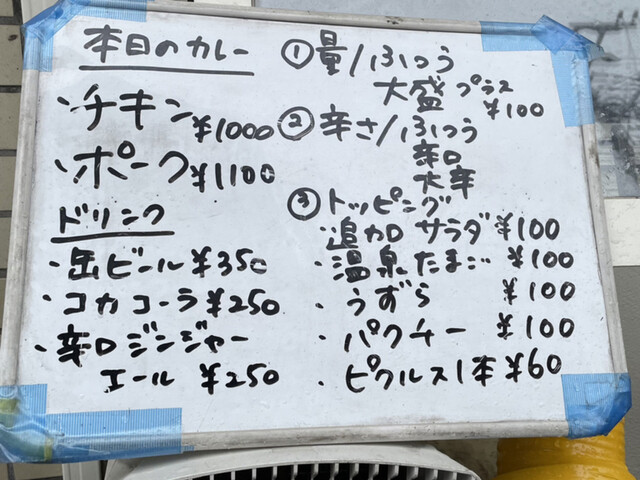 本日のカレー
・チキン ¥1000
・ポーク ¥1100
ドリンク
・缶ビール ¥350
・コカコーラ ¥250
・辛口ジンジャー
エール ¥250
① 量/ふつう
大盛 プラス
¥100
② 辛さ/ふつう
辛口
大辛
③ トッピング
・追加 サラダ ¥100
・温泉たまご ¥100
・うずら ¥100
・パクチー ¥100
・ピクルス1本 ¥60